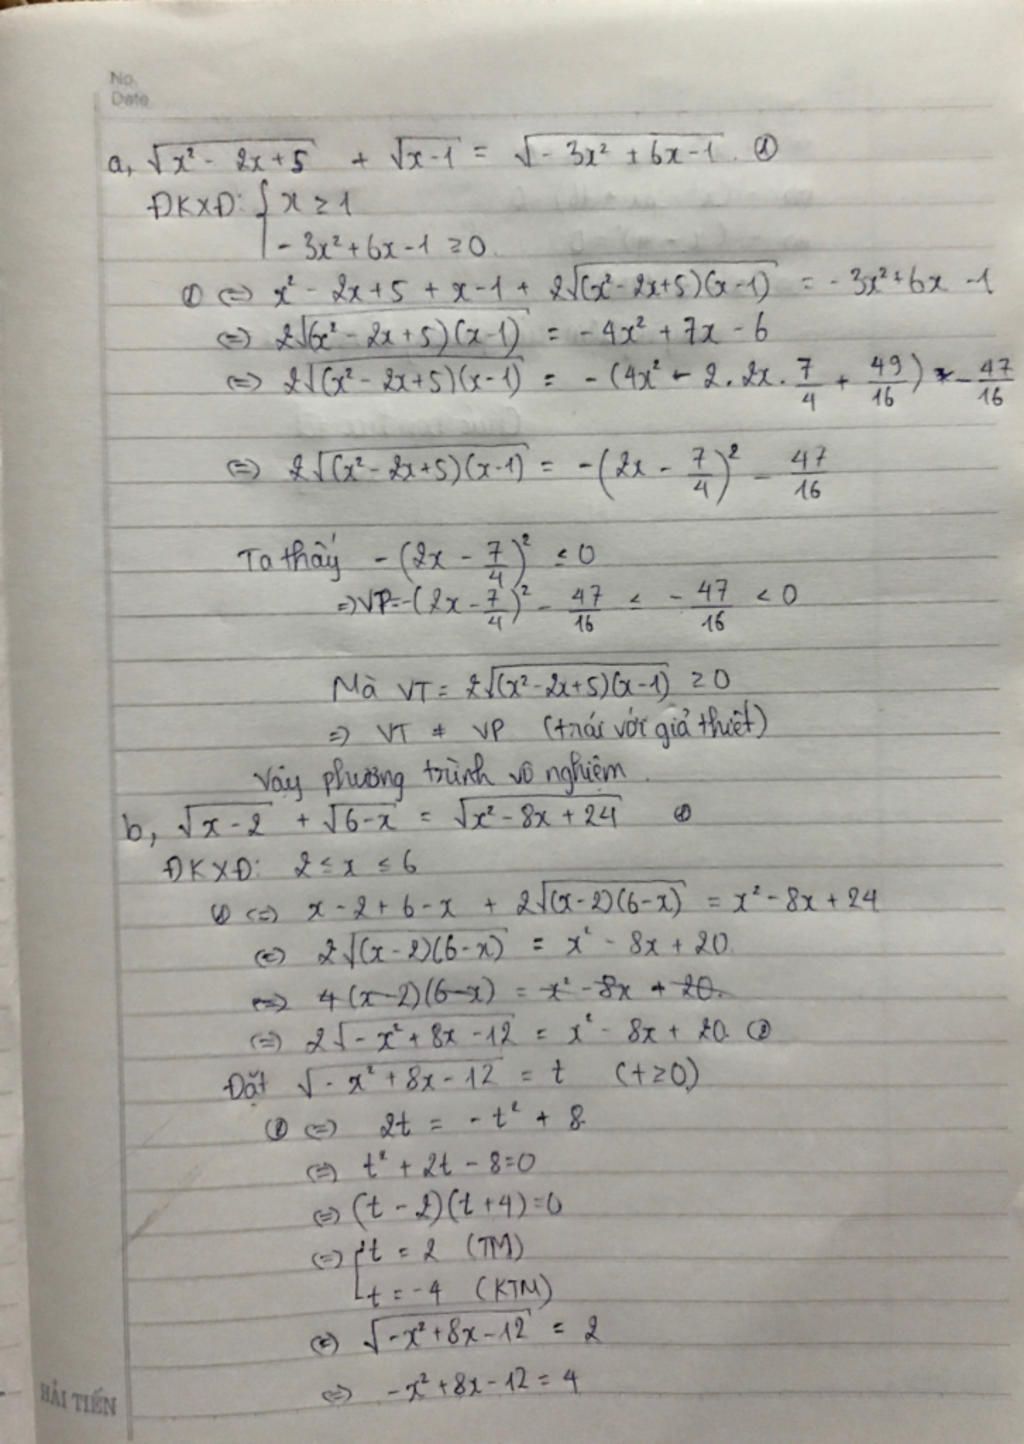 No.
Date
a, √(x² - 2x + 5) + √(x-1) = √(-3x² + 6x - 1) ①
ĐKXĐ: { x ≥ 1
-3x² + 6x - 1 ≥ 0
① ⇔ x² - 2x + 5 + x - 1 + 2√((x² - 2x + 5)(x-1)) = -3x² + 6x - 1
⇔ 2√((x² - 2x + 5)(x-1)) = -4x² + 7x - 6
⇔ 2√((x² - 2x + 5)(x-1)) = -(4x² - 2.2x.7/4 + 49/16) - 47/16
⇔ 2√((x² - 2x + 5)(x-1)) = -(2x - 7/4)² - 47/16
Ta thấy -(2x - 7/4)² ≤ 0
⇒ VP = -(2x - 7/4)² - 47/16 ≤ -47/16 < 0
Mà VT = 2√((x² - 2x + 5)(x-1)) ≥ 0
⇒ VT ≠ VP (trái với giả thiết)
Vậy phương trình vô nghiệm.
b, √(x-2) + √(6-x) = √(x² - 8x + 24) ①
ĐKXĐ: 2 ≤ x ≤ 6
① ⇔ x - 2 + 6 - x + 2√((x-2)(6-x)) = x² - 8x + 24
⇔ 2√((x-2)(6-x)) = x² - 8x + 20
⇔ 4(x-2)(6-x) = x² - 8x + 20.
⇔ 2√(-x² + 8x - 12) = x² - 8x + 20. ②
Đặt √(-x² + 8x - 12) = t (t ≥ 0)
② ⇔ 2t = -t² + 8
⇔ t² + 2t - 8 = 0
⇔ (t - 2)(t + 4) = 0
⇔ [ t = 2 (TM)
t = -4 (KTM)
⇔ √(-x² + 8x - 12) = 2
⇔ -x² + 8x - 12 = 4
HẢI TIẾN